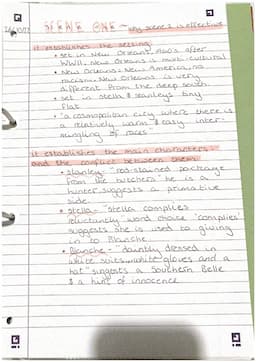 SCENE ONE - why scene 1 is effective
it establishes the setting:
• set in New Orleans, 1940's after
WWII. New Orleans is multi-cultural
• New Orleans = New America, no
racism. New Orleans is very
different from the deep south
• set in stella & stanley's tiny
flat
• "a cosmopolitan city where there is
a relatively warm & easy inter-
mingling of races"
it establishes the main characters
and the conflict between them:
• stanley - "red-stained package
from the butchers" he is a
hunter, suggests a primative
side.
• stella - "stella complies
reluctantly" word choice 'complies'
suggests she is used to giving
in to Blanche
• Blanche - "daintily dressed in
white suit... white gloves and a
hat" suggests a Southern Belle
& a hint of innocence